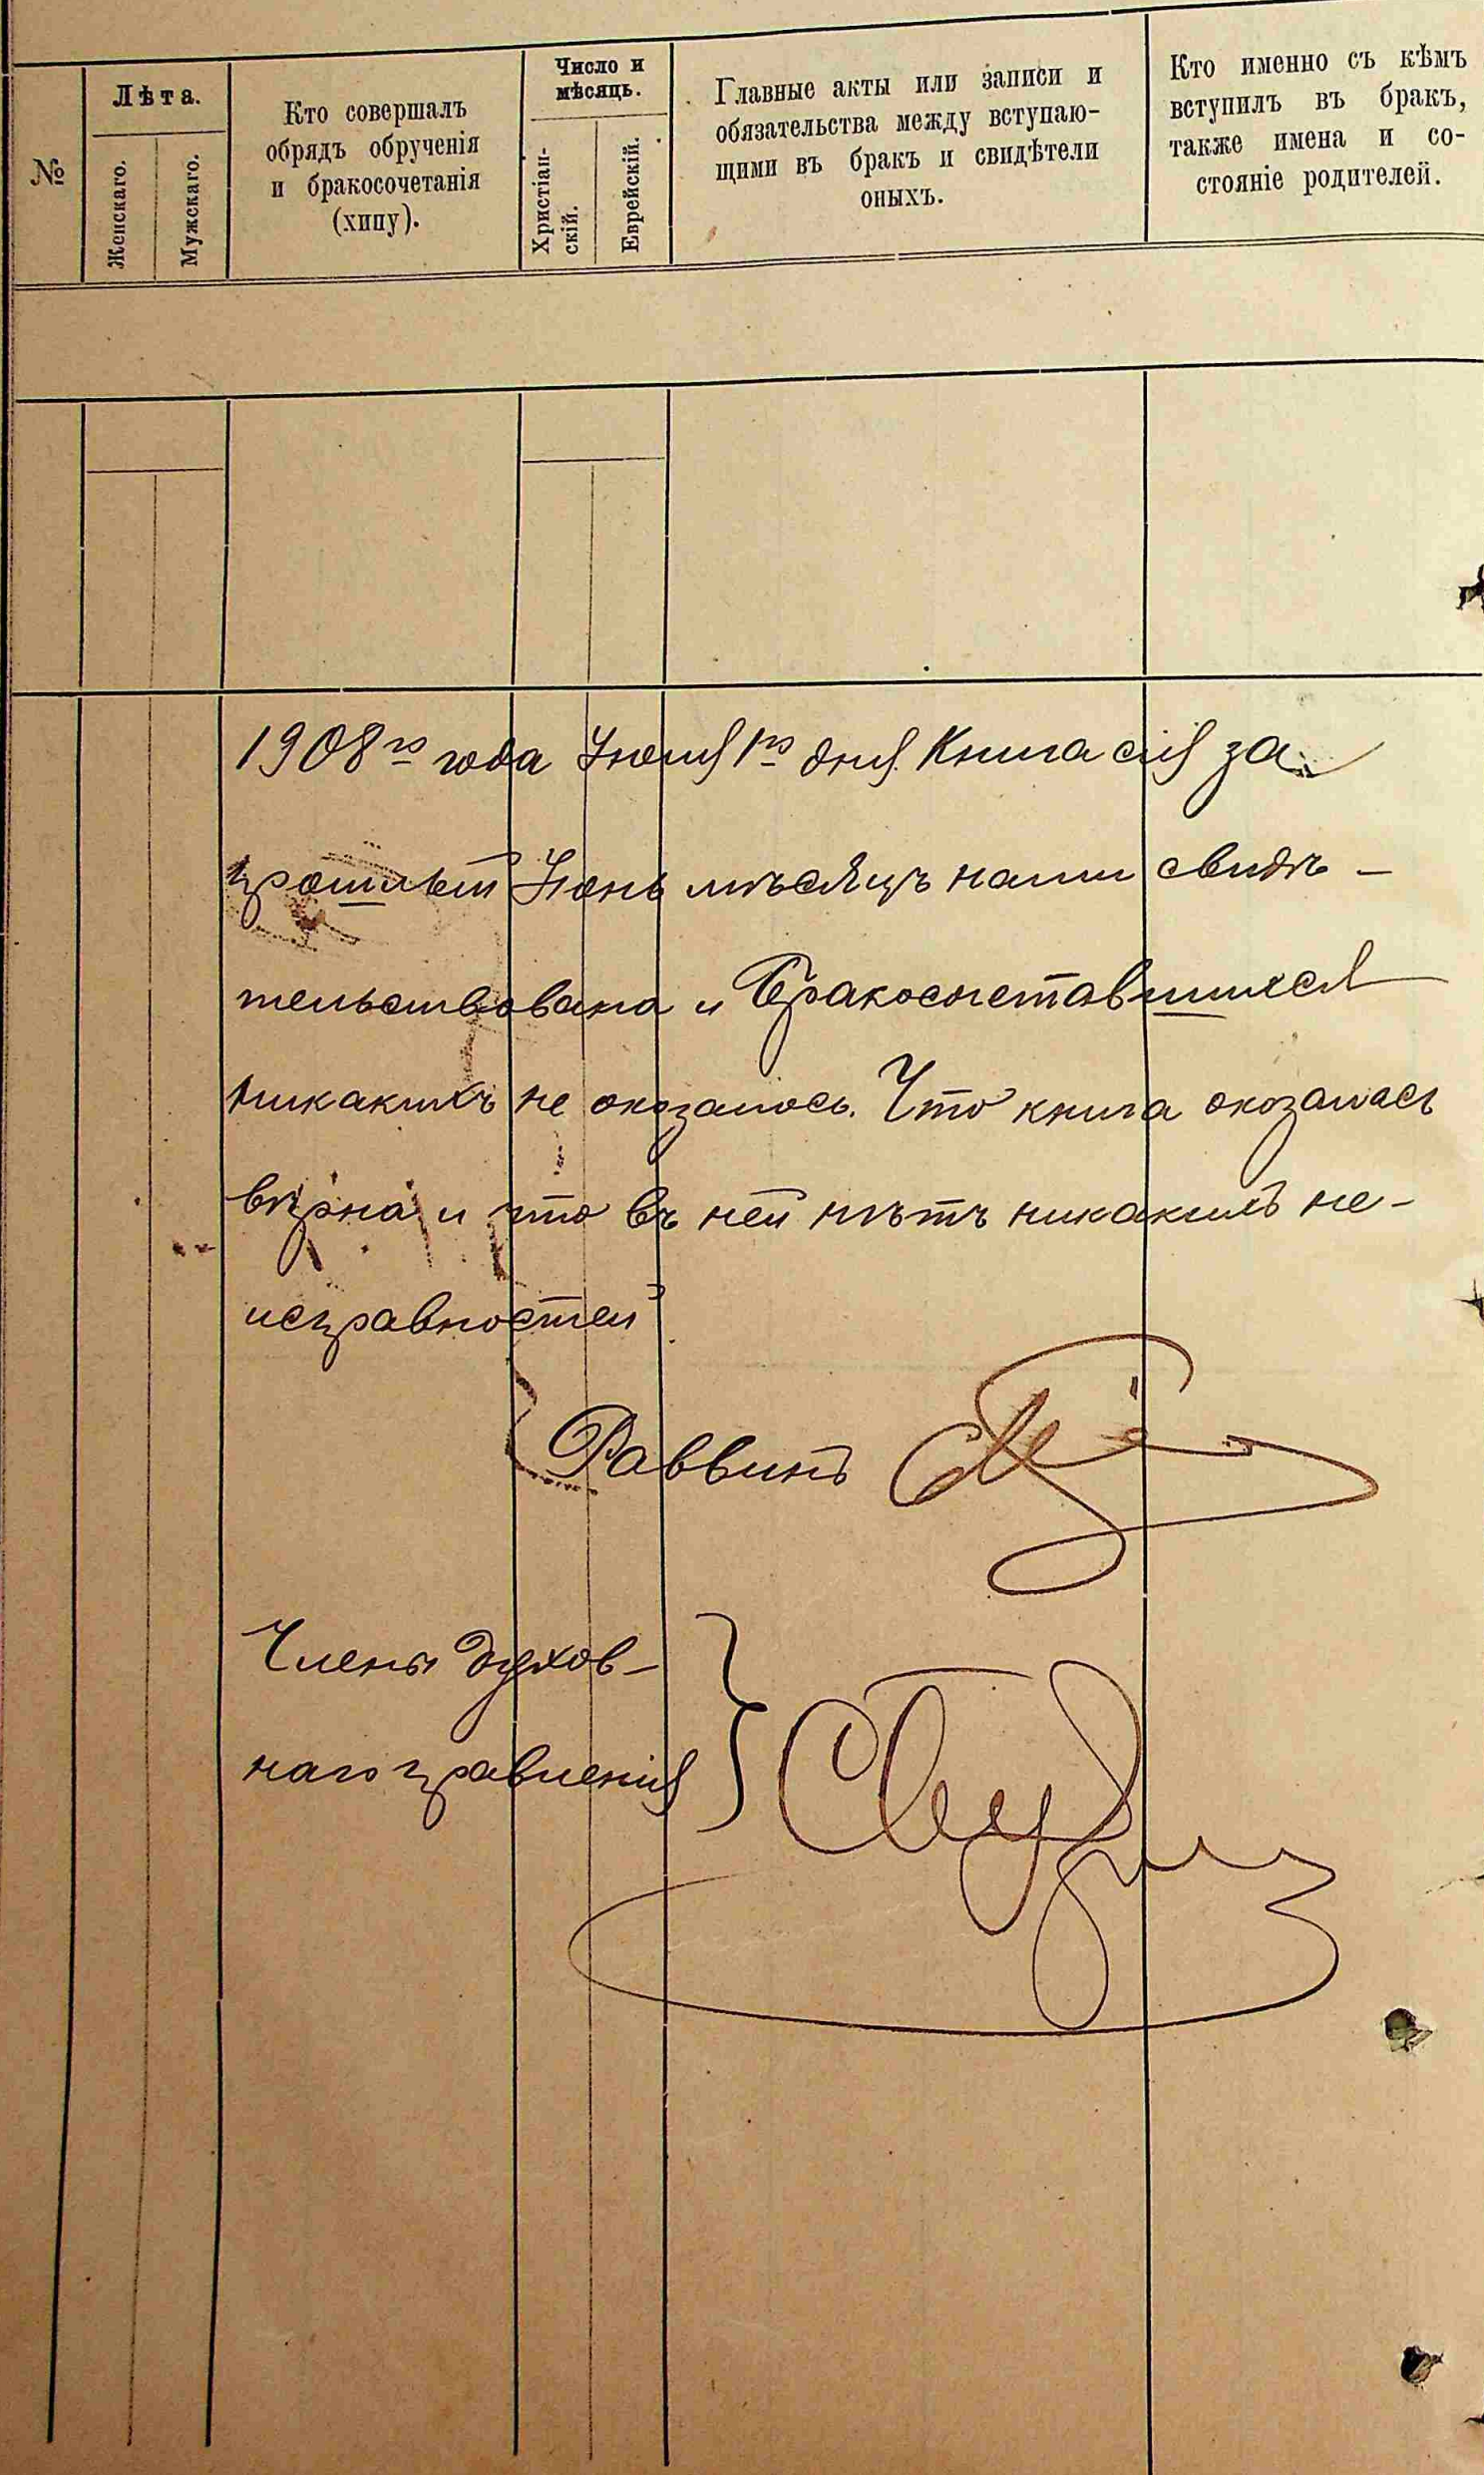 №
Лѣта.
Женскаго.
Мужскаго.
Кто совершалъ
обрядъ обрученія
и бракосочетанія
(хипу).
Число и
мѣсяцъ.
Христіан-
скій.
Еврейскій.
Главные акты или записи и
обязательства между вступаю-
щими въ бракъ и свидѣтели
оныхъ.
Кто именно съ кѣмъ
вступилъ въ бракъ,
также имена и со-
стояніе родителей.
1908го года Іюля 1го дня. Книга сія за
прошлый Іюнь мѣсяцъ нами свидѣ-
тельствована и бракосочетавшихся
никакихъ не оказалось. Что книга оказалась
вѣрна и что въ ней нѣтъ никакихъ не-
исправностей
Раввинъ
Члены духов-
наго правленія